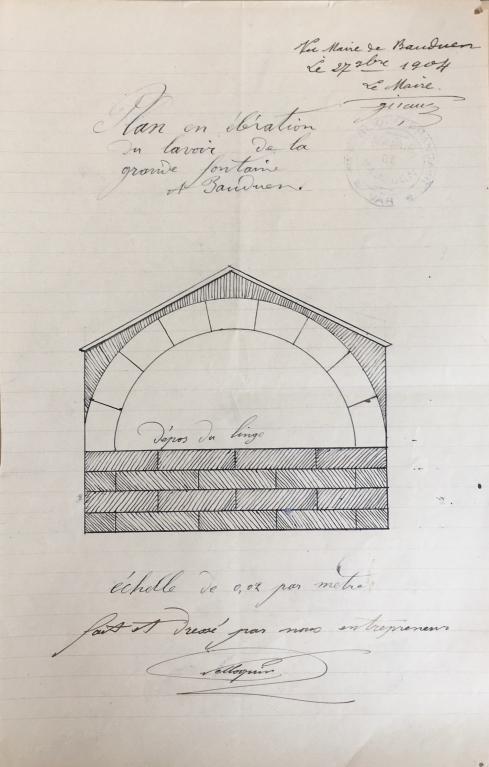 Vu Maire de Bauduen
Le 27 xbre 1904
Le Maire
Plan en élération
du lavoir de la
grande fontaine
de Bauduen.
VAR
dépos du linge
échelle de 0,02 par metre
fait et dressé par nous entrepreneur